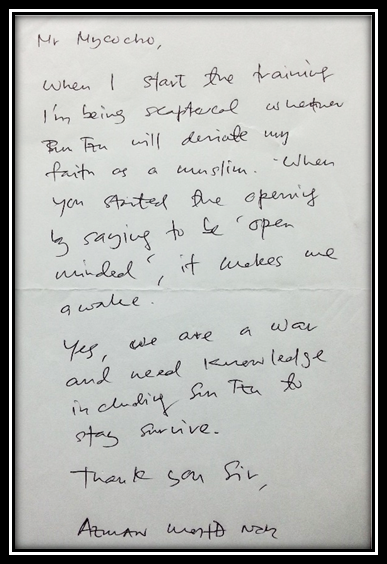 Mr Mycocho,
When I start the training
I'm being skeptical whether
Sun Tzu will deviate my
faith as a muslim. When
you started the opening
by saying to be 'open
minded', it makes me
awake.
Yes, we are a war
and need knowledge
including Sun Tzu to
stay survive.
Thank you Sir,
AZMAN MOHD